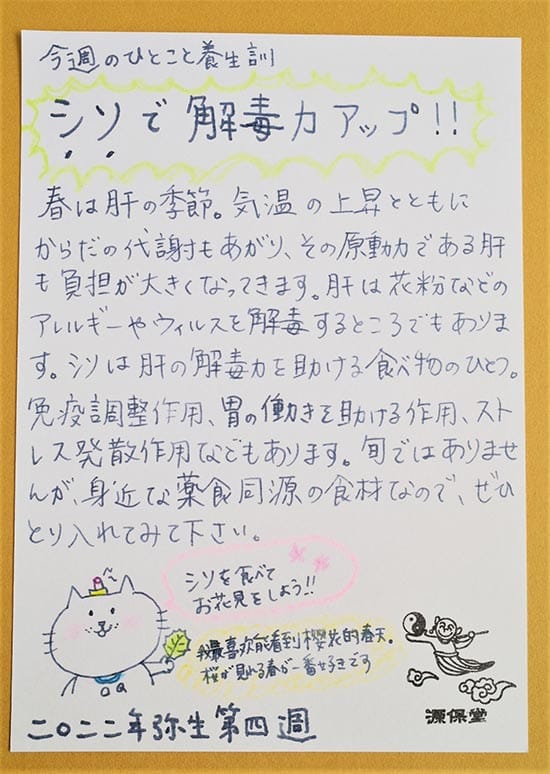 今週のひとこと養生訓
シソで解毒力アップ!!
春は肝の季節。気温の上昇とともに
からだの代謝もあがり、その原動力である肝
も負担が大きくなってきます。肝は花粉などの
アレルギーやウィルスを解毒するところでもありま
す。シソは肝の解毒力を助ける食べ物のひとつ。
免疫調整作用、胃の働きを助ける作用、スト
レス発散作用などもあります。旬ではありませ
んが、身近な薬食同源の食材なので、ぜひ
とり入れてみて下さい。
シソを食べて
お花見をしよう!!
我最喜欢能看到樱花的春天。
桜が見れる春が一番好きです
源保堂
二〇二二年弥生第四週